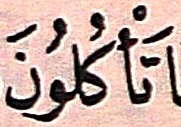 ا تَأْكُلُونَ